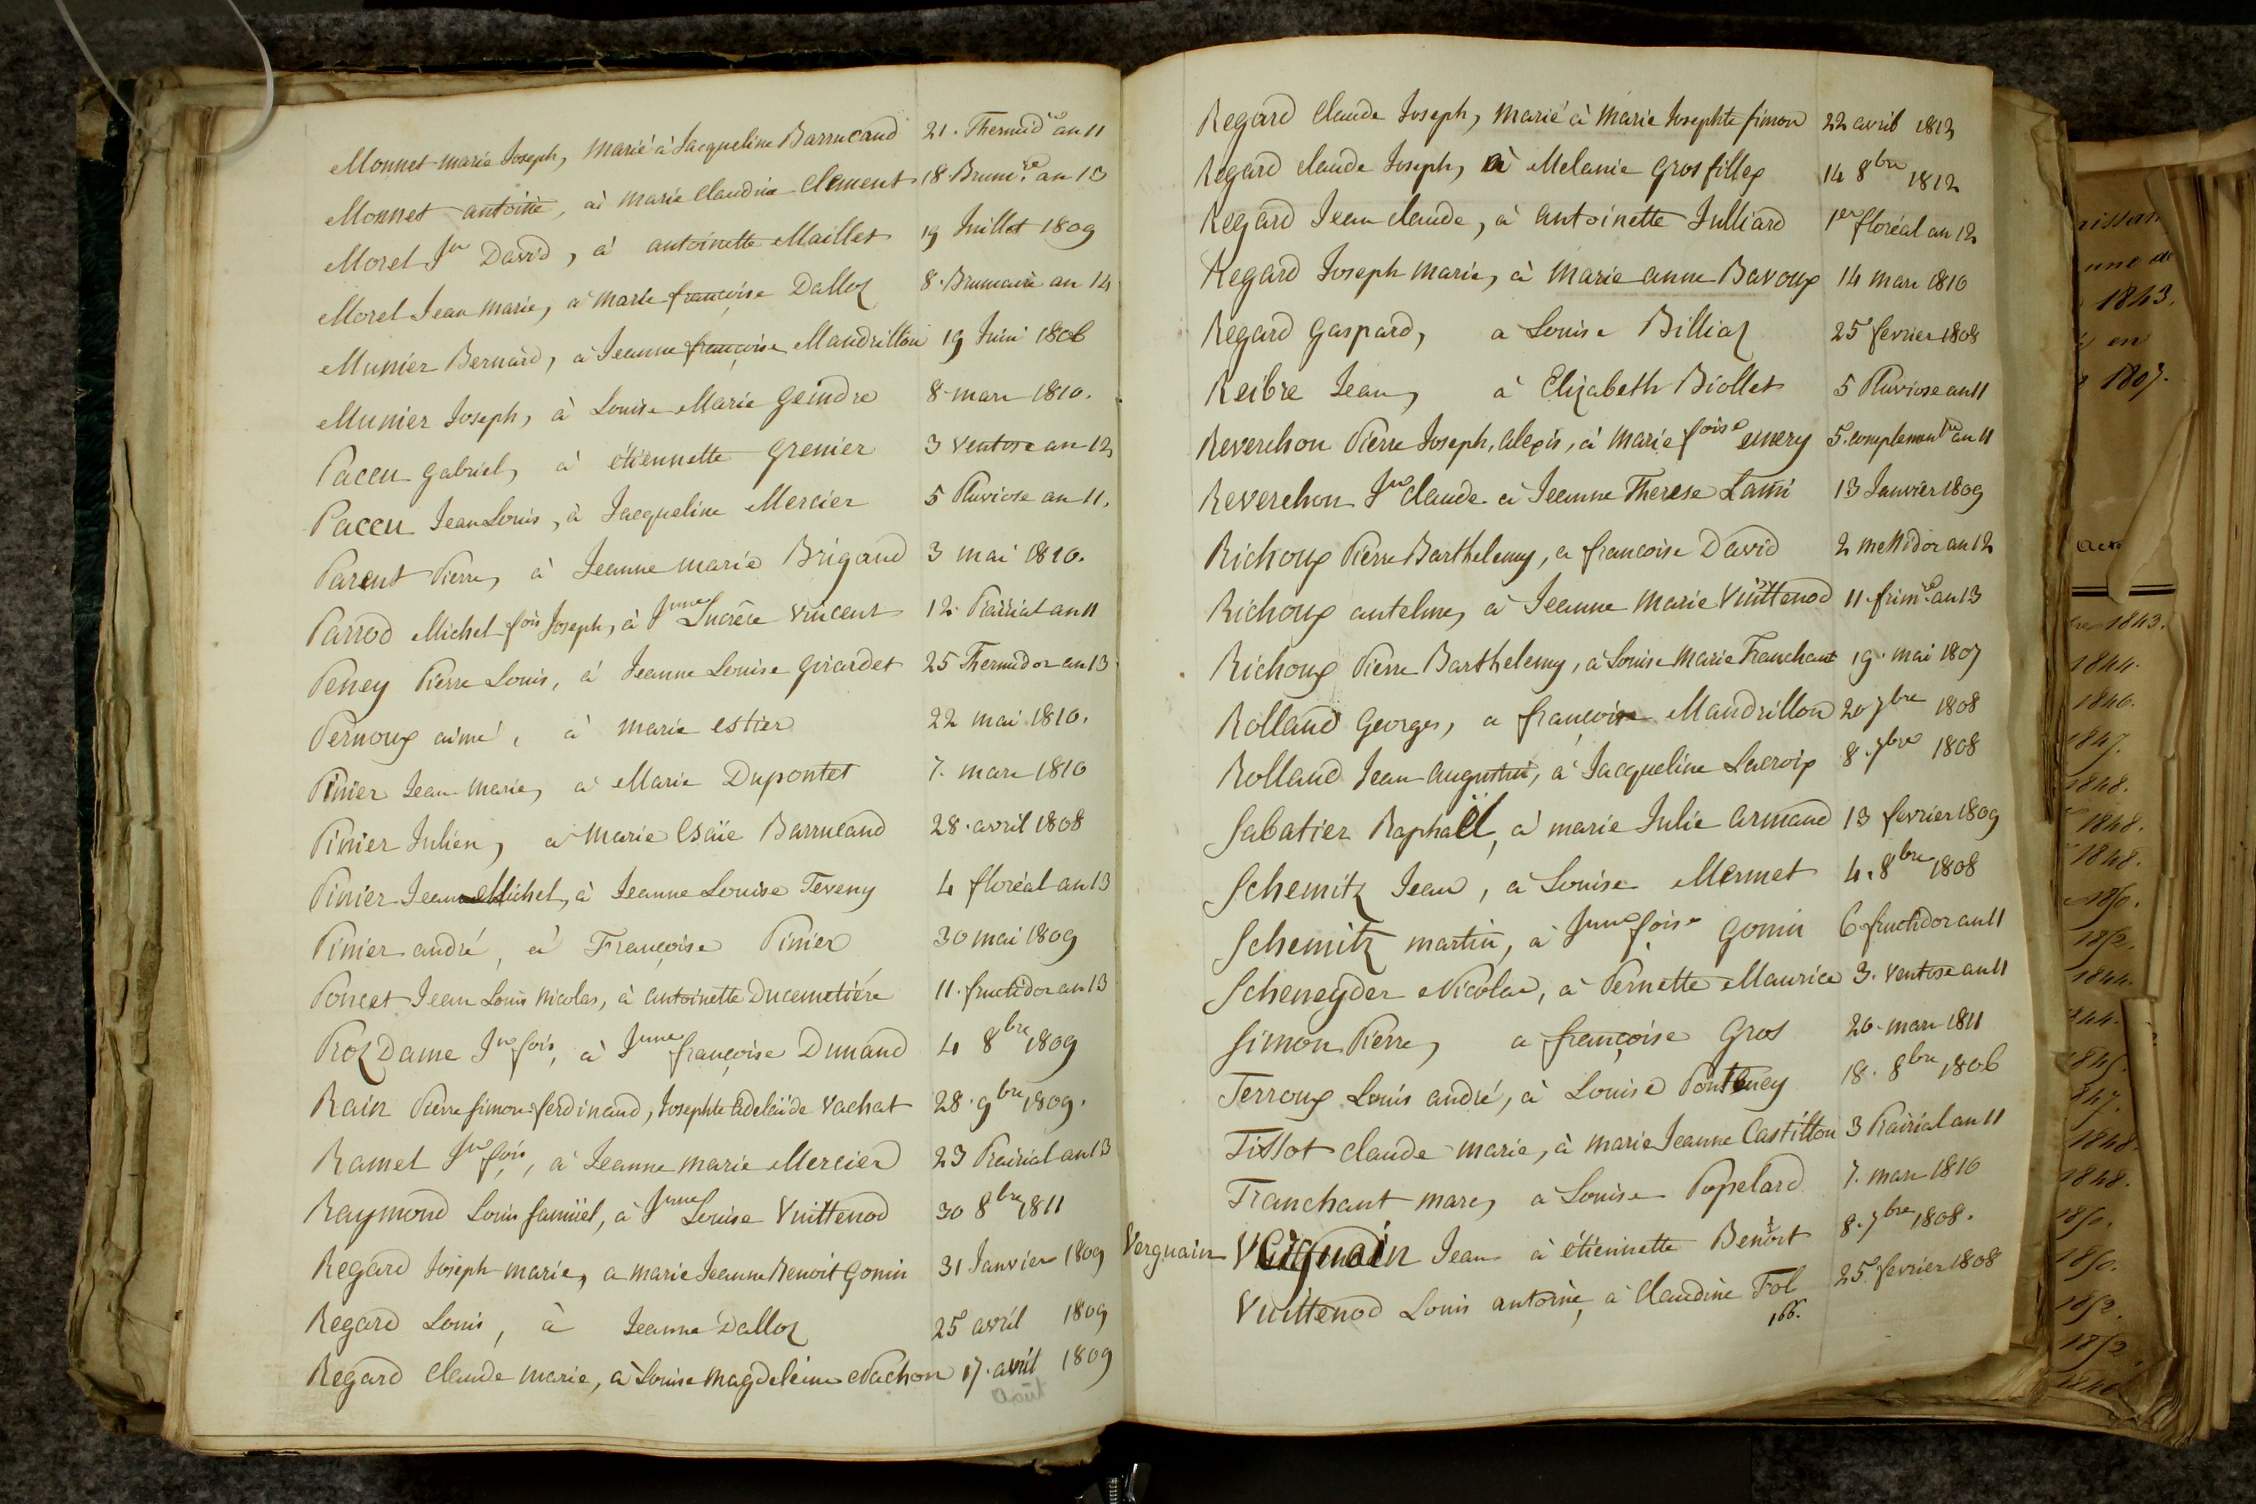 Monnet marie Joseph, marié à Jacqueline Barrucand 21. Thermid.re an 11
Monnet antoine, à marie Claudine Clement 18 Brum.re an 13
Morel Jn David, à antoinette Maillet 19 Juillet 1809
Morel Jean marie, à marie françoise Dalloz 8. Brumaire an 14
Munier Bernard, à Jeanne françoise Mandrillon 19 Juin 1806
Munier Joseph, à Louise Marie Geindre 8 mars 1810.
Paccu Gabriel, à étiennette Grenier 3 Ventose an 12
Paccu Jean Louis, à Jacqueline Mercier 5 Pluviose an 11.
Parent Pierre, à Jeanne marie Brigand 3 mai 1810.
Parrod Michel fois Joseph, à Jnne Lucrèce Vincent 12. Prairial an 11
Peney Pierre Louis, à Jeanne Louise Girardet 25 Thermidor an 13
Pernoux aimé, à marie estier 22 mai 1810.
Pinier Jean marie, à Marie Dupontet 7. mars 1810
Pinier Julien, à Marie Esaïe Barrucand 28. avril 1808
Pinier Jean Michel, à Jeanne Louise Teveny 4 floréal an 13
Pinier andré, à Françoise Pinier 30 mai 1809
Poncet Jean Louis Nicolas, à antoinette Ducimetière 11. fructidor an 13
Proz Dame Jn fois, à Jnne françoise Dunand 4 8bre 1809
Rain Pierre Simon ferdinand, Josephte Adelaïde Vachat 28. 9bre 1809.
Ramel Jn fois, à Jeanne marie Mercier 23 Prairial an 13
Raymond Louis Samüel, à Jnne Louise Vuittenod 30 8bre 1811
Regard Joseph marie, à marie Jeanne Benoit Gonin 31 Janvier 1809
Regard Louis, à Jeanne Dalloz 25 avril 1809
Regard Claude marie, à Louise Magdeleine Pachon 17. avril 1809
Août
Regard Claude Joseph, marié à Marie Josephte Simon 22 avril 1813
Regard Claude Joseph, à Melanie Grosfillex 14 8bre 1812
Regard Jean Claude, à Antoinette Julliard 1er floréal an 12
Regard Joseph Marie, à Marie anne Bavoux 14 mars 1810
Regard Gaspard, à Louise Billiaz 25 fevrier 1808
Reibre Jean, à Elizabeth Biollet 5 Pluviose an 11
Reverchon Pierre Joseph, Alexis, à Marie foise emery 5. complementre an 11
Reverchon Jn Claude à Jeanne Therese Lami 13 Janvier 1809
Richoux Pierre Barthelemy, à françoise David 2 messidor an 12
Richoux antelme, à Jeanne Marie Vuittenod 11. frim.e an 13
Richoux Pierre Barthelemy, à Louise Marie Tranchant 19. mai 1807
Rolland Georges, à françoise Mandrillon 20 7bre 1808
Rolland Jean Augustin, à Jacqueline Lacroix 8. 7bre 1808
Sabatier Raphaël, à marie Julie Armand 13 fevrier 1809
Schemitz Jean, à Louise Mermet 4. 8bre 1808
Schemitz martin, à Jnne foise Gonin 6 fructidor an 11
Scheneyder Nicolas, à Pernette Maurice 3. Ventose an 11
Simon Pierre, à françoise Gros 20. mars 1811
Terroux Louis andré, à Louise Ponteney 18. 8bre 1806
Tissot Claude marie, à marie Jeanne Castillon 3 Prairial an 11
Tranchant marc, à Louise Popelard 7. mars 1810
Verguain Verguain Jean à étiennette Benoit 8. 7bre 1808.
Vuittenod Louis antoine, à Claudine Fol 25 fevrier 1808
166.